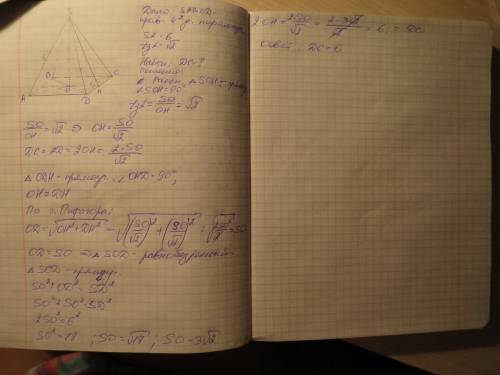 Дано: SABCD -
прав. 4х уг. пирамида
SA = 6
tg α = √2
Найти: DC - ?
Решение:
△SOH - прямоуг.
∠SOH = 90°
tg α = SO/OH = √2
SO/OH = √2 ⇒ OH = SO/√2
DC = AD = 2OH = 2·SO/√2
△ODH - прямоуг., ∠OHD = 90°,
OH = DH
По т. Пифагора:
OD = √(OH² + DH²) = √((SO/√2)² + (SO/√2)²) =
OD = SO ⇒ △SOD - равнобедренный
△SOD - прямоуг.
SO² + OD² = SD²
SO² + SO² = SD²
2SO² = 6²
SO² = 18 ; SO = √18 ; SO = 3√2
2OH = 2SO/√2 = 2·3√2/√2 = 6 = DC
Ответ: DC = 6